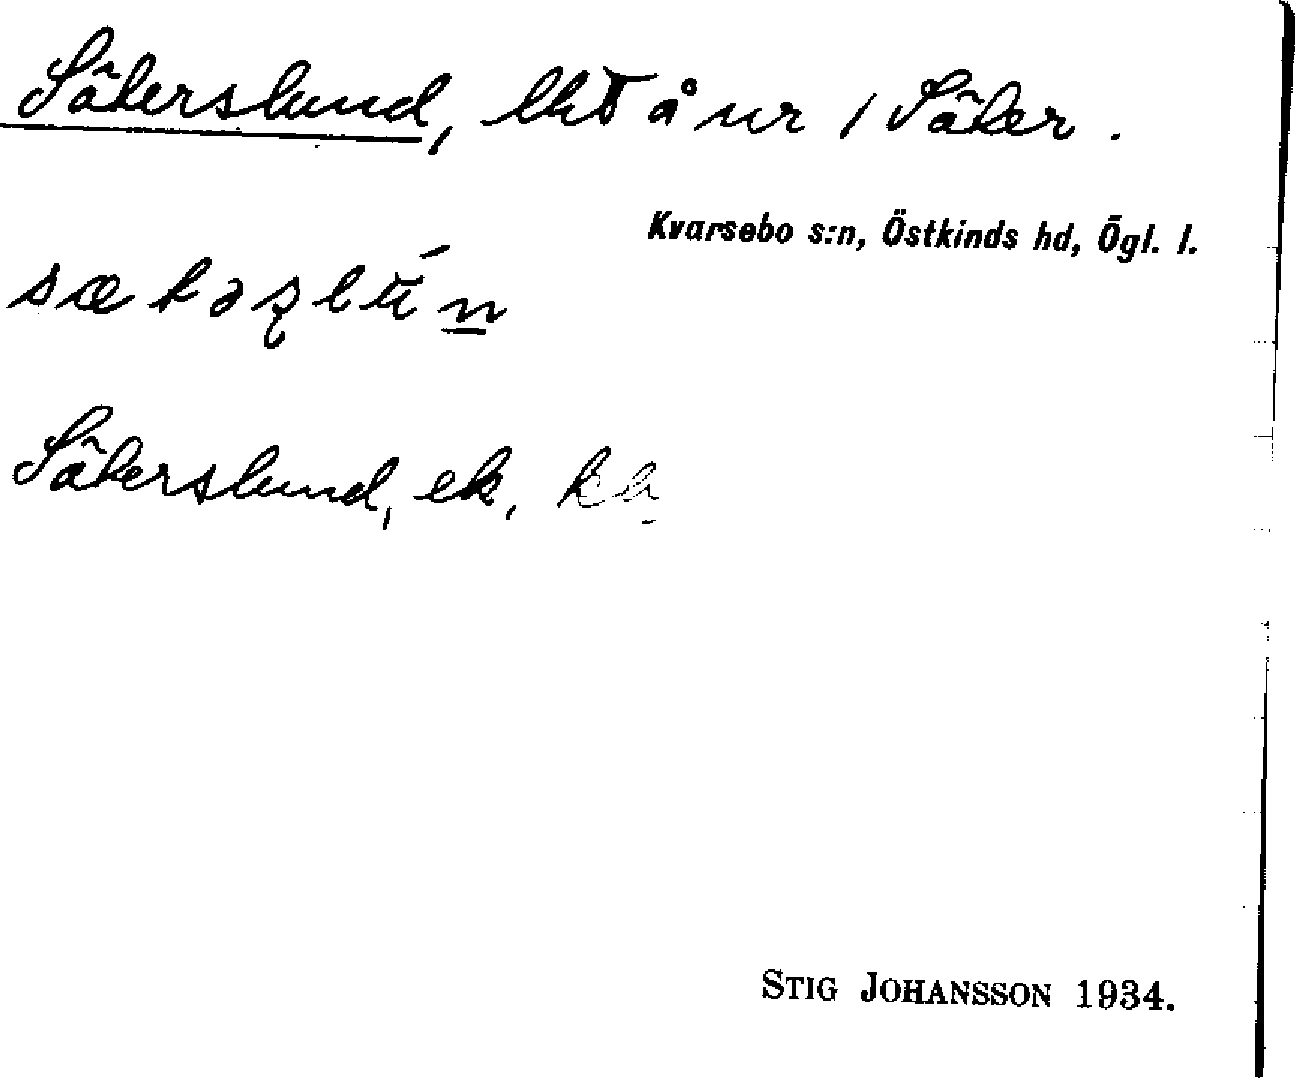 Säterslund, lht å nr 1 Säter.
Kvarsebo s:n, Östkinds hd, Ögl. l.
Säterslund, ek, kb
STIG JOHANSSON 1934.